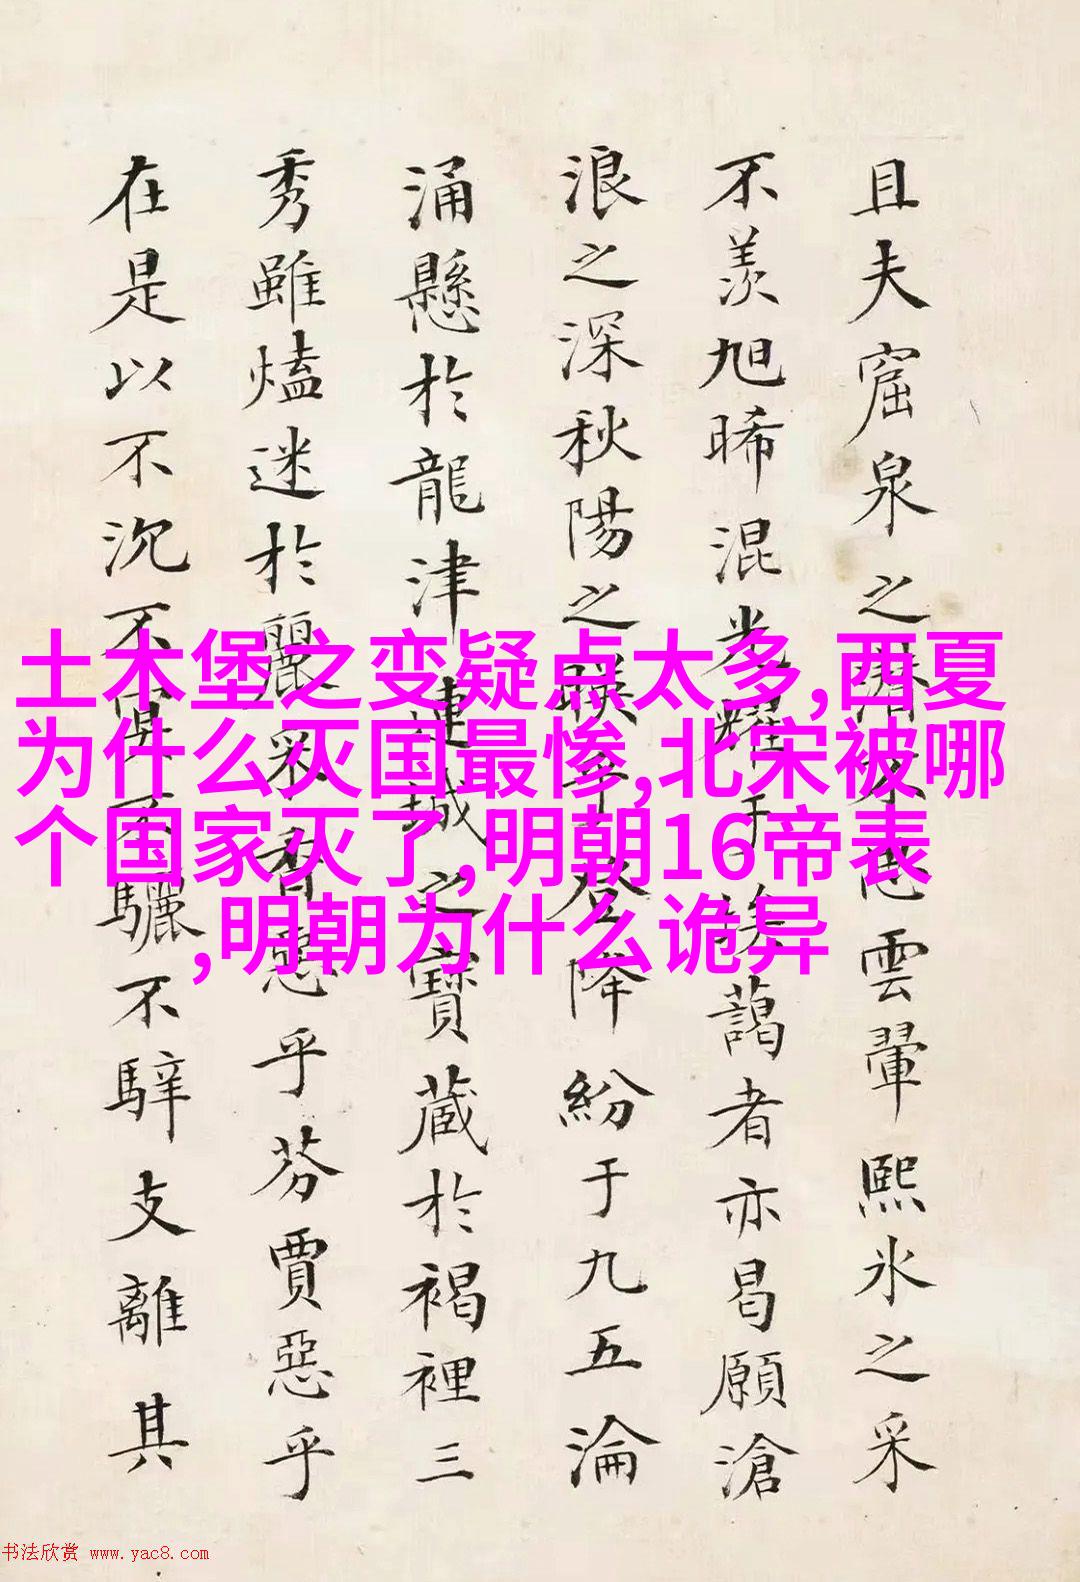 且夫窟泉之潛不雲翬熙氷之采
不羨旭晞混光耀于埃藹者亦曷願滄
浪之深秋陽之暎乎登降紛于九五淪
涌懸於龍津連城之寶藏於褐裡三
秀雖熆迷於麗采香惡乎芬賈惡乎
在是以不沉不冥不驪不騂支離其
土木堡之变疑点太多,西夏
为什么灭国最惨,北宋被哪
个国家灭了,明朝16帝表
,明朝为什么诡异
书法欣赏 www.yac8.com